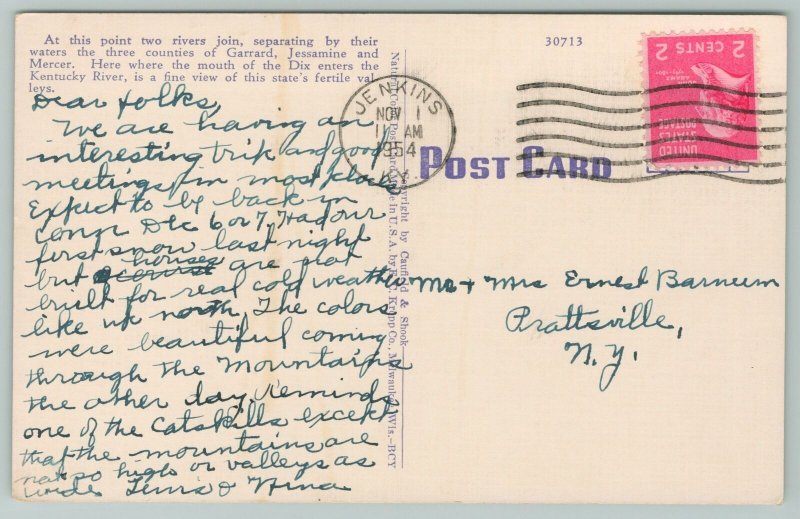 At this point two rivers join, separating by their
waters the three counties of Garrard, Jessamine and
Mercer. Here where the mouth of the Dix enters the
Kentucky River, is a fine view of this state's fertile val-
leys.
30713
Dear folks,
We are having an
interesting trip and good
meetings in most places
Expect to be back in
conn Dec 6 or 7. Had our
first snow last night
but houses are not
built for real cold weather
like up north. The colors
were beautiful coming
through the Mountains
the other day. Reminds
one of the Catskills except
that the mountains are
not so high or valleys as
wide. Lewis & Nina
Natural Color Post Card Made in U.S.A. by E. C. Kropp Co., Milwaukee, Wis.—BCY
Copyright by Caufield & Shook
JENKINS
NOV 1
11 AM
1954
KY.
POST CARD
2 CENTS 2
JOHN
ADAMS
UNITED
STATES
POSTAGE
Mr + Mrs Ernest Barnum
Prattsville,
N.Y.